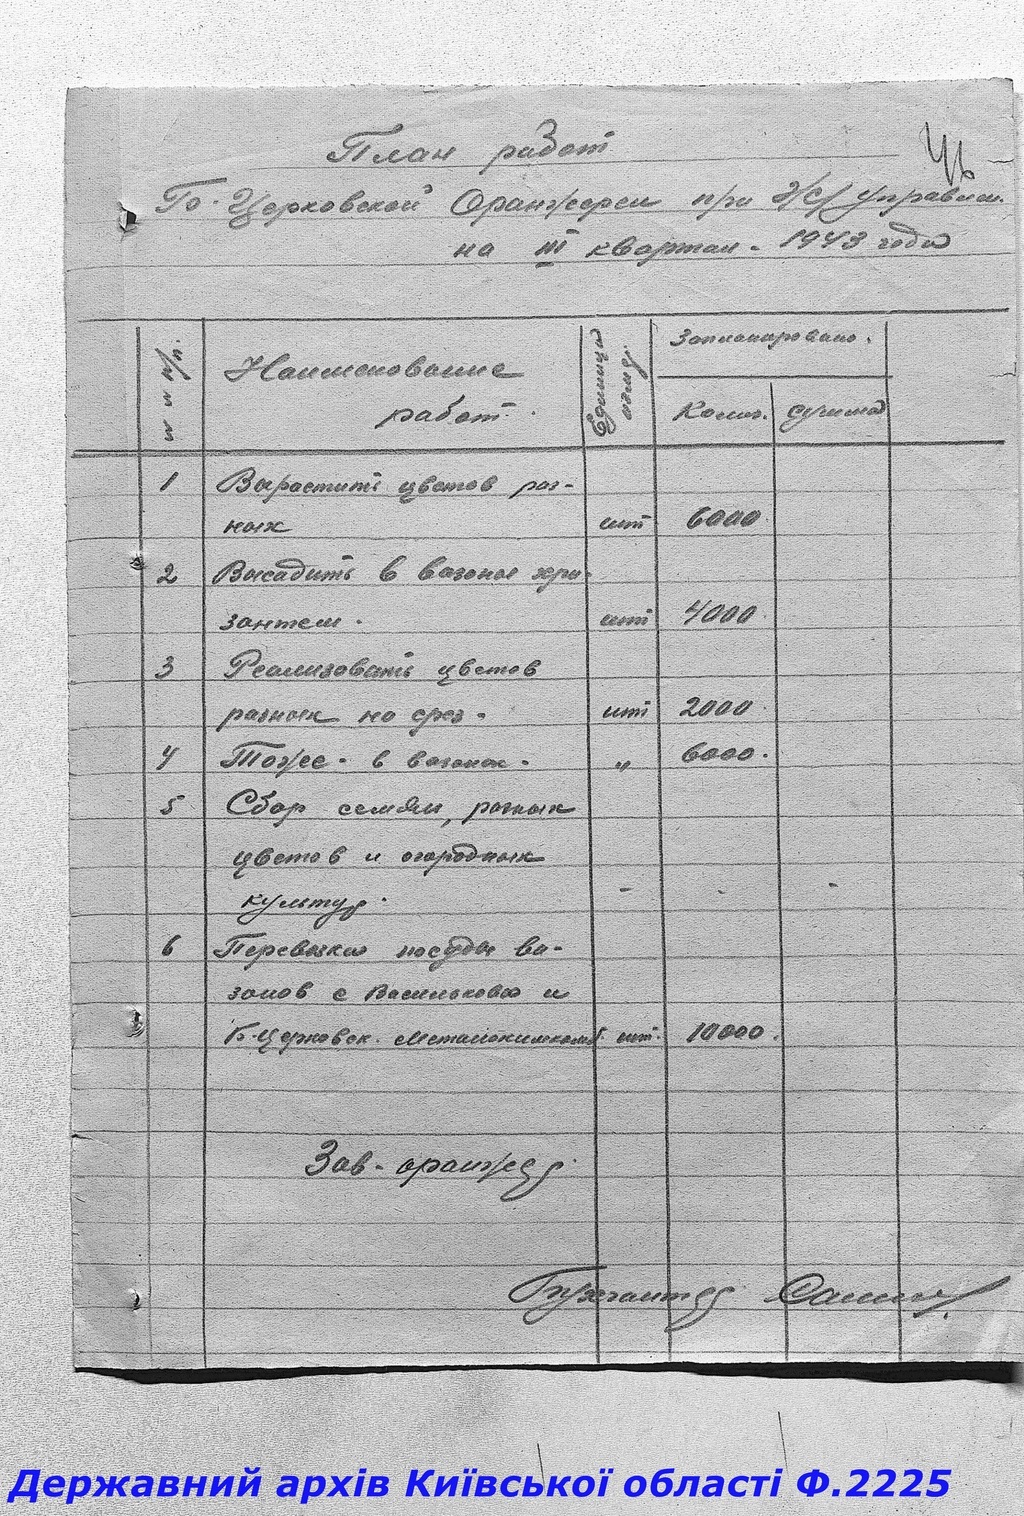 План работ
Б-Церковской Оранжереи при
на III квартал - 1943 года
№ № п/п.
Наименование
работ.
Единица
измер.
Запланировано.
Колич.
сумма
1 Вырастить цветов раз-
ных шт 6000
2 Высадить в вазоны хри-
зантем. шт 4000
3 Реализовать цветов
разных на срез. шт 2000
4 Тоже - в вазонах. " 6000.
5 Сбор семян, разных
цветов и огородных
культур. - - -
6 Перевозка посуды ва-
зонов с Василькова и
Б-Церковск. шт. 10000.
Зав. оранжер.
Бухгалтер
Державний архів Київської області Ф.2225